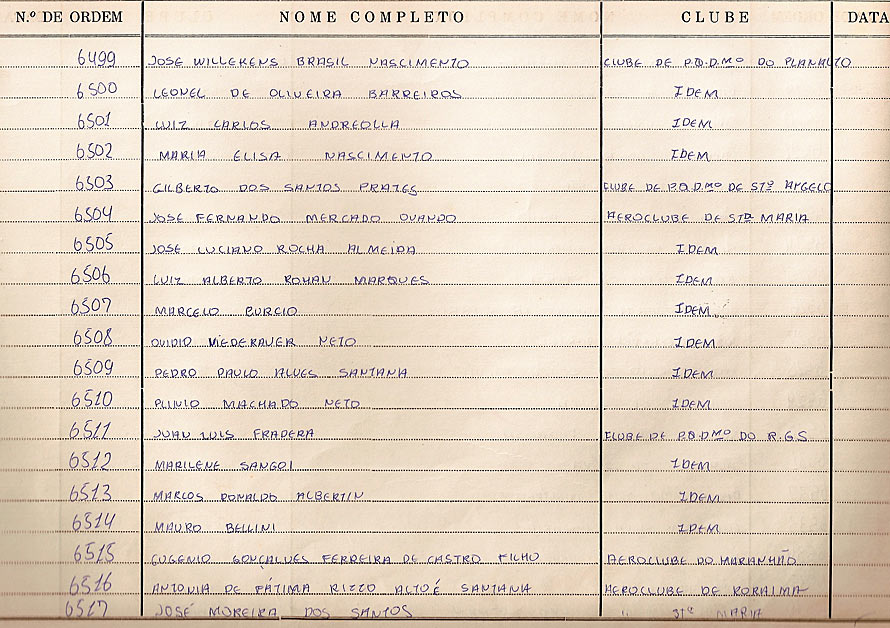 N.º DE ORDEM NOME COMPLETO CLUBE DATA
6499 JOSE WILLEKENS BRASIL NASCIMENTO CLUBE DE P.Q.D.Mº DO PLANALTO
6500 LEONEL DE OLIVEIRA BARREIROS IDEM
6501 LUIZ CARLOS ANDREOLLA IDEM
6502 MARIA ELISA NASCIMENTO IDEM
6503 GILBERTO DOS SANTOS PRATES CLUBE DE P.Q.D.Mº DE STº ANGELO
6504 JOSE FERNANDO MERCADO OVANDO AEROCLUBE DE STª MARIA
6505 JOSE LUCIANO ROCHA ALMEIDA IDEM
6506 LUIZ ALBERTO ROHAN MARQUES IDEM
6507 MARCELO BURCIO IDEM
6508 OVIDIO NIEDERAUER NETO IDEM
6509 PEDRO PAULO ALVES SANTANA IDEM
6510 PLINIO MACHADO NETO IDEM
6511 JUAN LUIS FRADERA CLUBE DE P.Q.D.Mº DO R.G.S
6512 MARILENE SANGOI IDEM
6513 MARCOS RONALDO ALBERTIN IDEM
6514 MAURO BELLINI IDEM
6515 EUGENIO GONÇALVES FERREIRA DE CASTRO FILHO AEROCLUBE DO MARANHÃO
6516 ANTONIA DE FÁTIMA RIZZO ALTOÉ SANTANA AEROCLUBE DE RORAIMA
6517 JOSÉ MOREIRA DOS SANTOS " STª MARIA